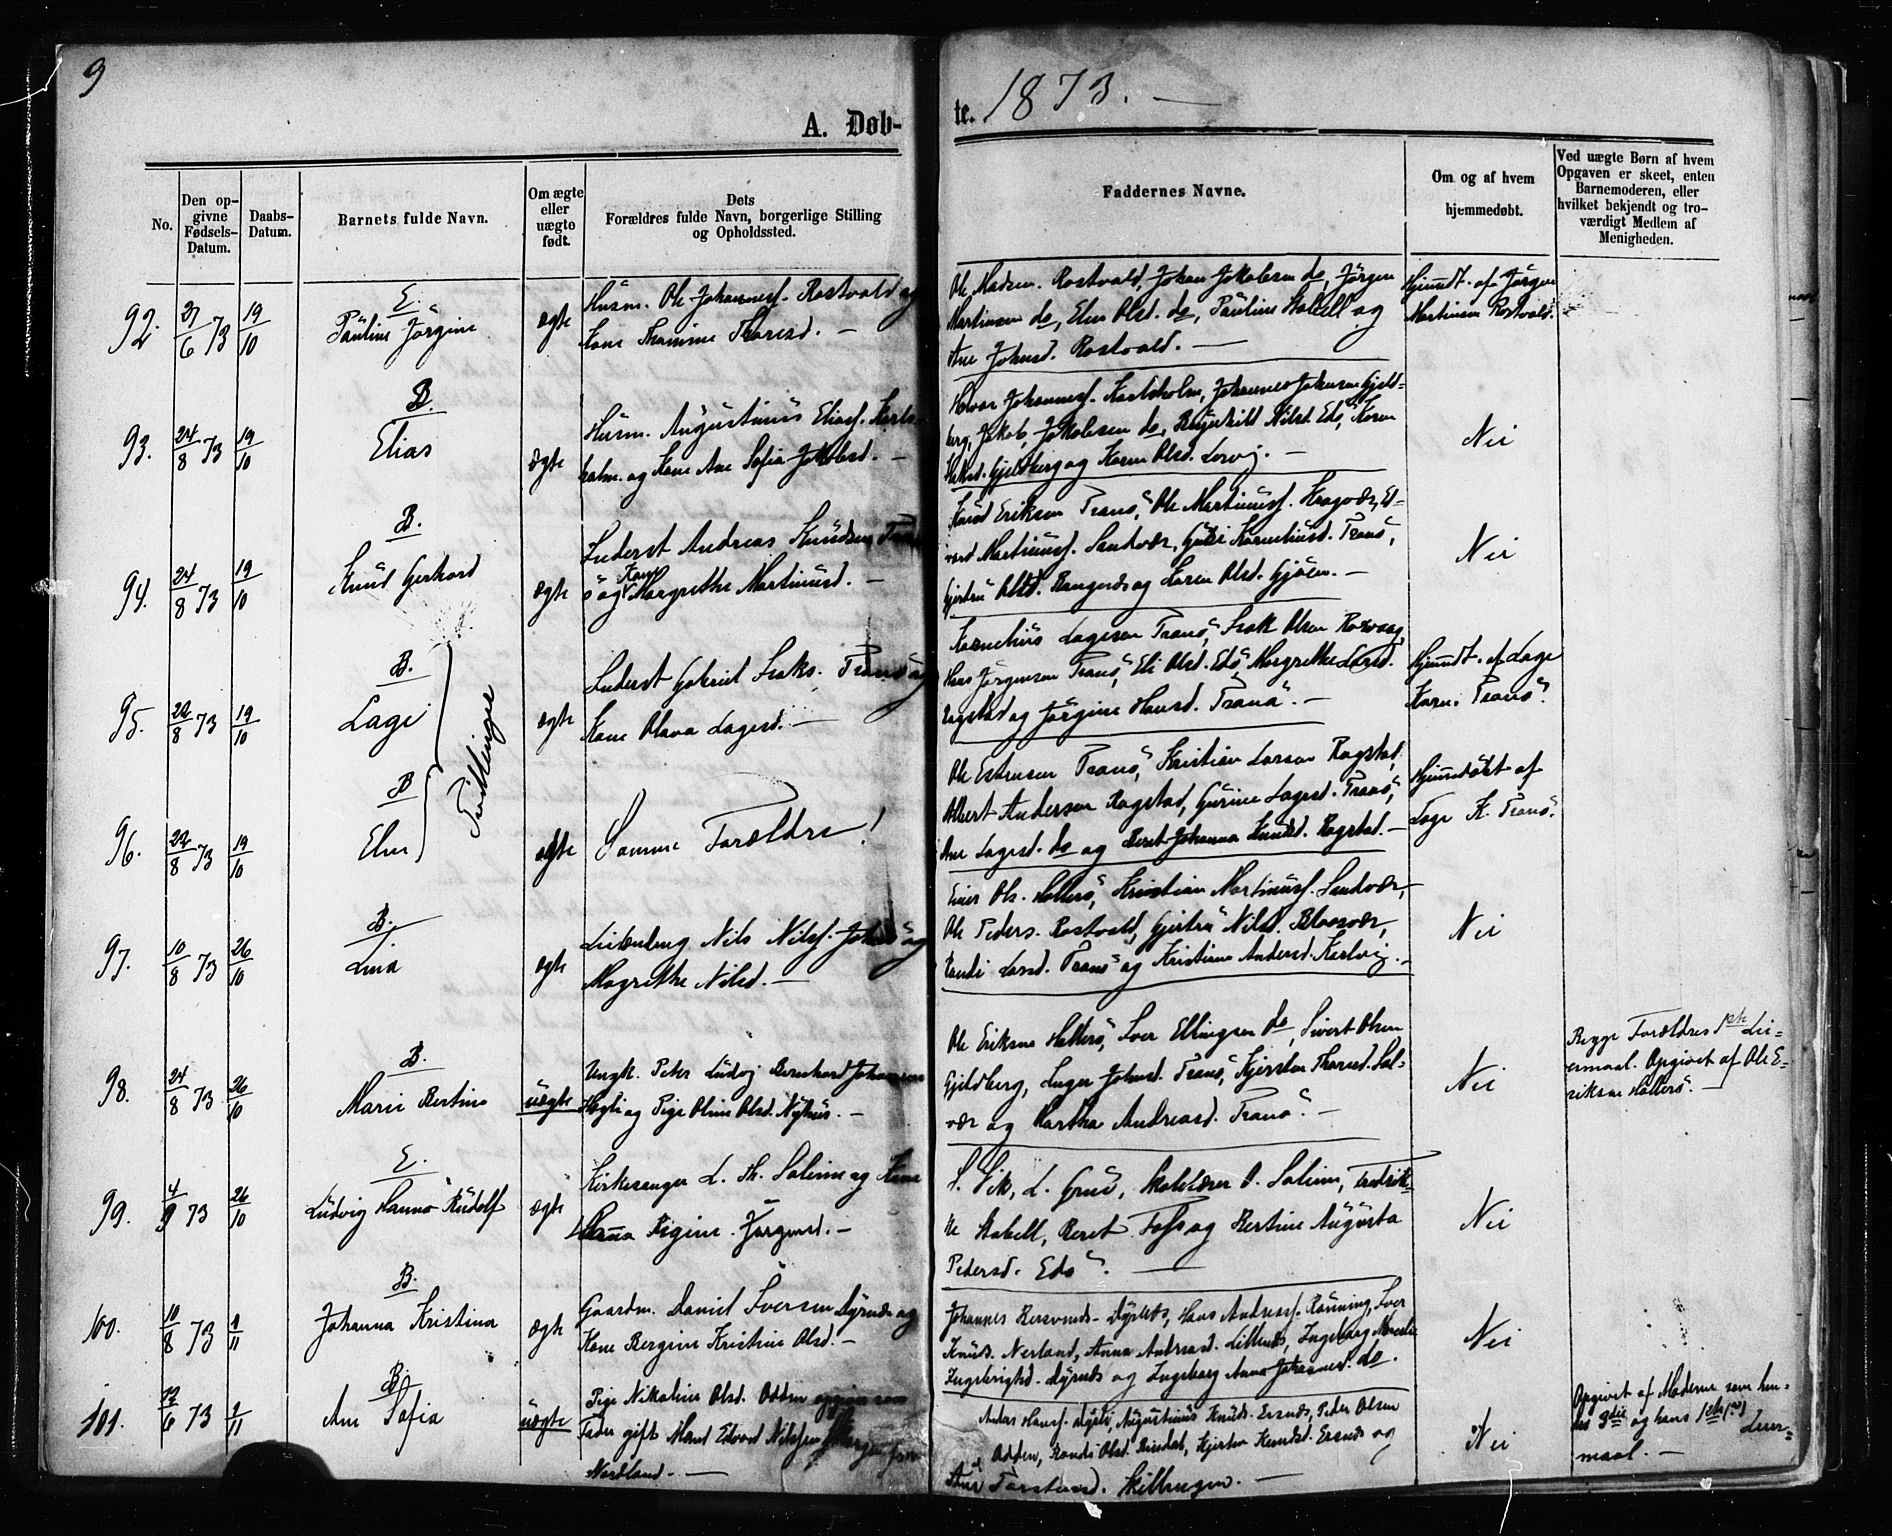 9
A. Døb-
te. 1873. —
No.
Den op-
givne
Fødsels-
Datum.
Daabs-
Datum.
Barnets fulde Navn.
Om ægte
eller
uægte
født.
Dets
Forældres fulde Navn, borgerlige Stilling
og Opholdssted.
Faddernes Navne.
Om og af hvem
hjemmedøbt.
Ved uægte Børn af hvem
Opgaven er skeet, enten
Barnemoderen, eller
hvilket bekjendt og tro-
værdigt Medlem af
Menigheden.
92. 27/6 73 19/10
E
Pauline Jörgine
ægte
Husm. Ole Johannesf. Rostvold og
Kone Thomine Thoresd. —
Ole Madsen Rostvold, Johan Jakobsen do, Jörgen
Martinsen do, Elen Olsd. do, Pauline Stabell og
Ane Johnsd. Rostvold. —
Hjemdt. af Jörgen
Martinsen Rostvold.
93. 24/8 73 19/10
B.
Elias
ægte
Husm. Augustinus Eliasf. Karls-
holm og Kone Ane Sofia Jakobsd. —
Johannesf. Karlsholm, Johannes Johnsen Gjeld-
berg, Jakob Jakobsen do, Nilsd. Edö, Karen
Gjeldberg og Karen Olsd. Lervig. —
Nei
94. 24/8 73 19/10
B.
Knud Gerhard
ægte
Inderst Andreas Knudsen Tran-
ö og Kone Margrethe Martinusd. —
Knud Eriksen Tranö, Ole Martinusf. Kragvær, Ed-
vard Martinusf. Sandvær, Kornelusd. Tranö,
Gjertru Olsd. og Karen Olsd. Gjöen. —
Nei
95. 22/8 73 19/10
B.
Lage
Tvillinger
ægte
Inderst Gabriel Isaks. Tranö og
Kone Olava Lagesd. —
Kornelius Lagesen Tranö, Isak Olsen Rosvaag,
Hans Jörgensen Tranö, Eli Olsd. Edö, Margrethe Larsd.
Ragstad og Jörgine Hansd. Tranö. —
Hjemdt. af Lage
Korn. Tranö.
96. 22/8 73 19/10
B
Elen
ægte
Samme Forældre!
Ole Estensen Tranö, Kristian Larsen Ragstad,
Albert Andersen Ragstad, Gurine Lagesd. Tranö,
Ane Lagesd. do og Beret Johanna Knudsd. Ragstad. —
Hjemmedöbt af
Lage K. Tranö.
97. 10/8 73 26/10
B.
Lina
ægte
Nils Nilsf. og
Magrethe Nilsd. —
Einer Ols. Hallerö, Kristian Martinusf. Sandvær,
Ole Peders. Rostvold, Gjertru Nilsd. Blaasvær,
Randi Larsd. Tranö og Kristine Andersd. Korsvig. —
Nei
98. 24/8 73 26/10
B.
Marie Bertine
uægte
Ungk. Peter Ludvig Bernhard Johansen
og Pige Oline Olsd. Nyhus. —
Ole Eriksen Hallerö, Iver Ellingsen do, Sivert Olsen
Gjeldberg, Inger Johnsd. Tranö, Kjersten Thoresd. Sal-
vær og Martha Andreasd. Tranö. —
Nei
Begge Forældres 1ste Lei-
ermaal. Opgivet af Ole E-
riksen Hallerö. —
99. 4/9 73 26/10
E.
Ludvig Hannö Rudolf
ægte
Kirkesanger L. Th. Solem og Kone
Anna Regine Jörgensd. —
S. Vik, L. Grue, Skolelærer O. Solem, Fredrik-
ke Stabell, Beret Foss og Bertine Augusta
Pedersd. Edö. —
Nei
100. 10/8 73 1/11
B.
Johanna Kristina
ægte
Gaardm. Daniel Iversen Dyrnæs og
Kone Bergine Kristine Olsd. —
Johannes Dyrnæs, Hans Andreasf. Rönning, Iver
Knuds. Nerland, Anna Andreasd. Ingeborg
Ingebrigtsd. Dyrnæs og Ingeborg Anna Johannesd. do.
Nei
101. 12/6 73 2/11
B.
Ane Sofia
uægte
Pige Nikoline Olsd. Odden opgiven som
Fader gift Mand Edvard Nilssen fra
Nordland. —
Anders Hansf. Augustinus Knuds. Ersnes, Peder Olsen
Odden, Randi Olsd. Kjersten Knudsd. Ersnes og
Torstensd. Skillingen. —
Nei
Opgivet af Moderen som hen-
des 3die og hans 1ste (?) Leier-
maal. —